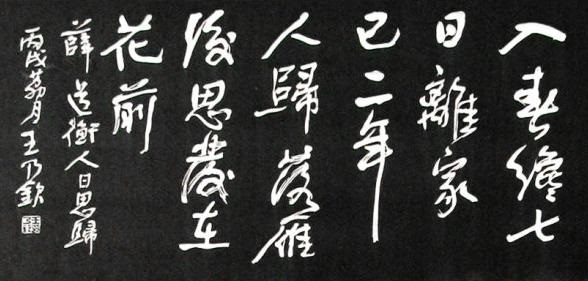 入春纔七
日離家
已二年
人歸落雁
後思發在
花前
薛道衡人日思歸
丙戌荔月王乃欽